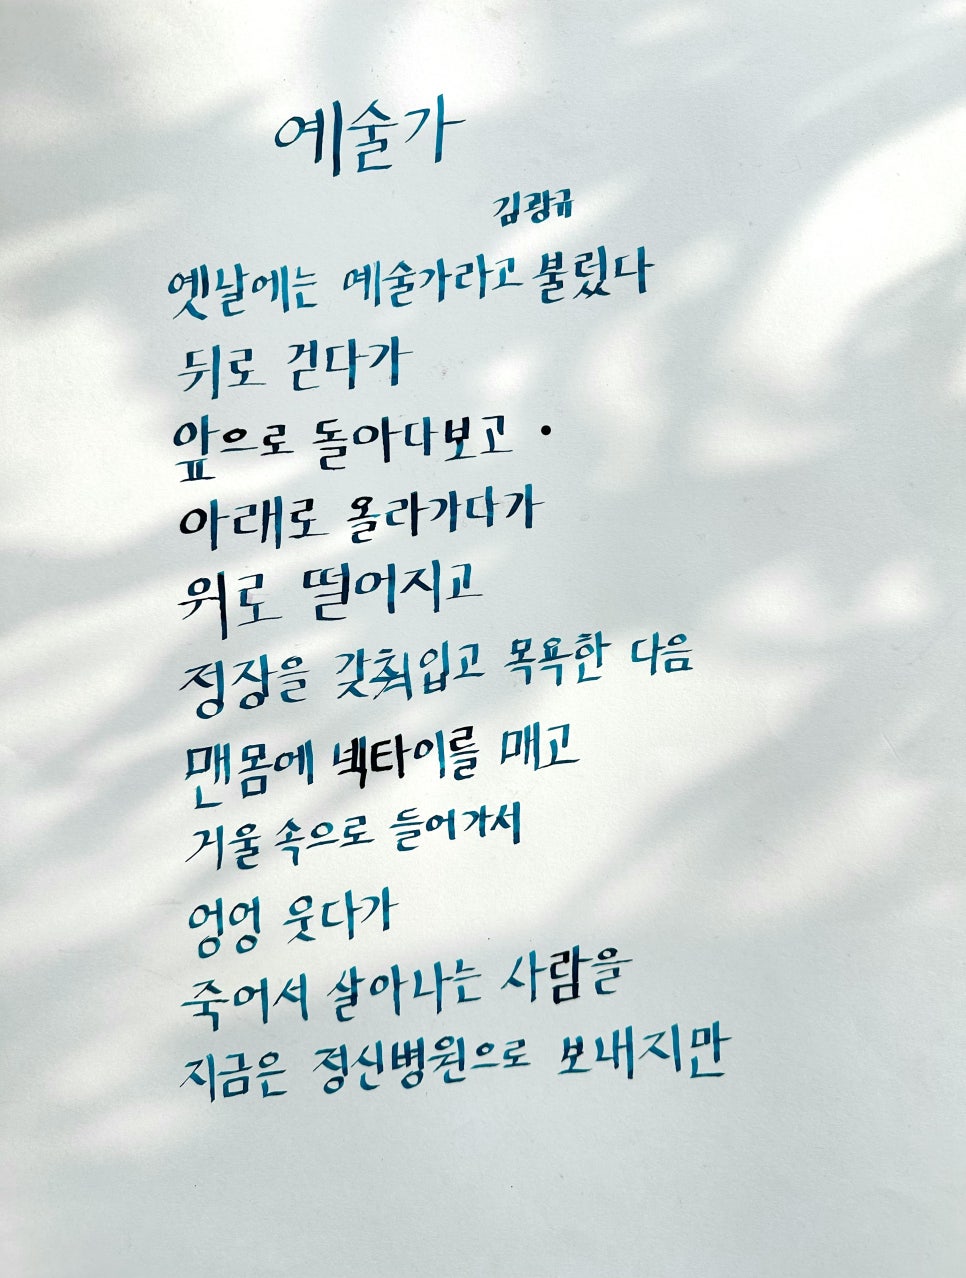 예술가
김광규
옛날에는 예술가라고 불렀다
뒤로 걷다가
앞으로 돌아다보고
아래로 올라가다가
위로 떨어지고
정장을 갖춰입고 목욕한 다음
맨몸에 넥타이를 매고
거울 속으로 들어가서
엉엉 웃다가
죽어서 살아나는 사람을
지금은 정신병원으로 보내지만